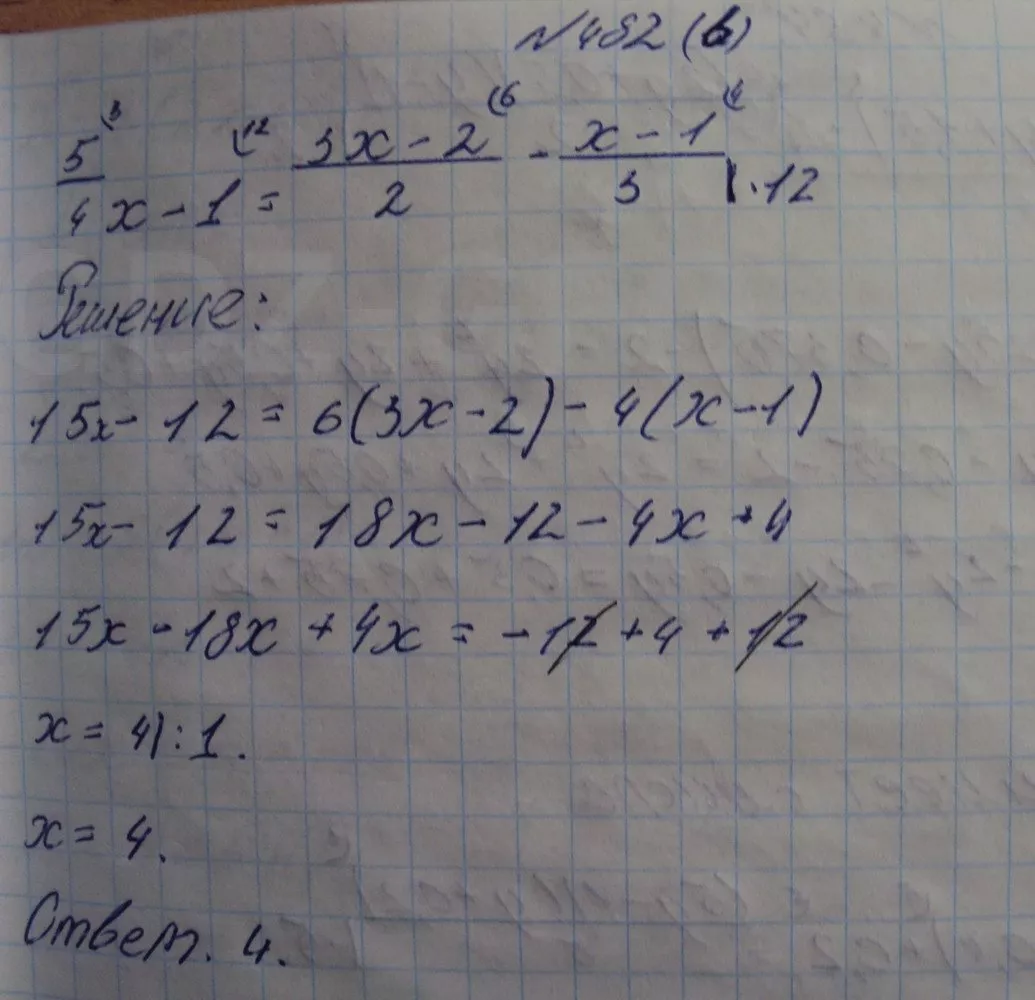 №482 (в)
5/4 x - 1 = (3x - 2)/2 - (x - 1)/3 | · 12
Решение:
15x - 12 = 6(3x - 2) - 4(x - 1)
15x - 12 = 18x - 12 - 4x + 4
15x - 18x + 4x = -12 + 4 + 12
x = 4 : 1.
x = 4.
Ответ. 4.